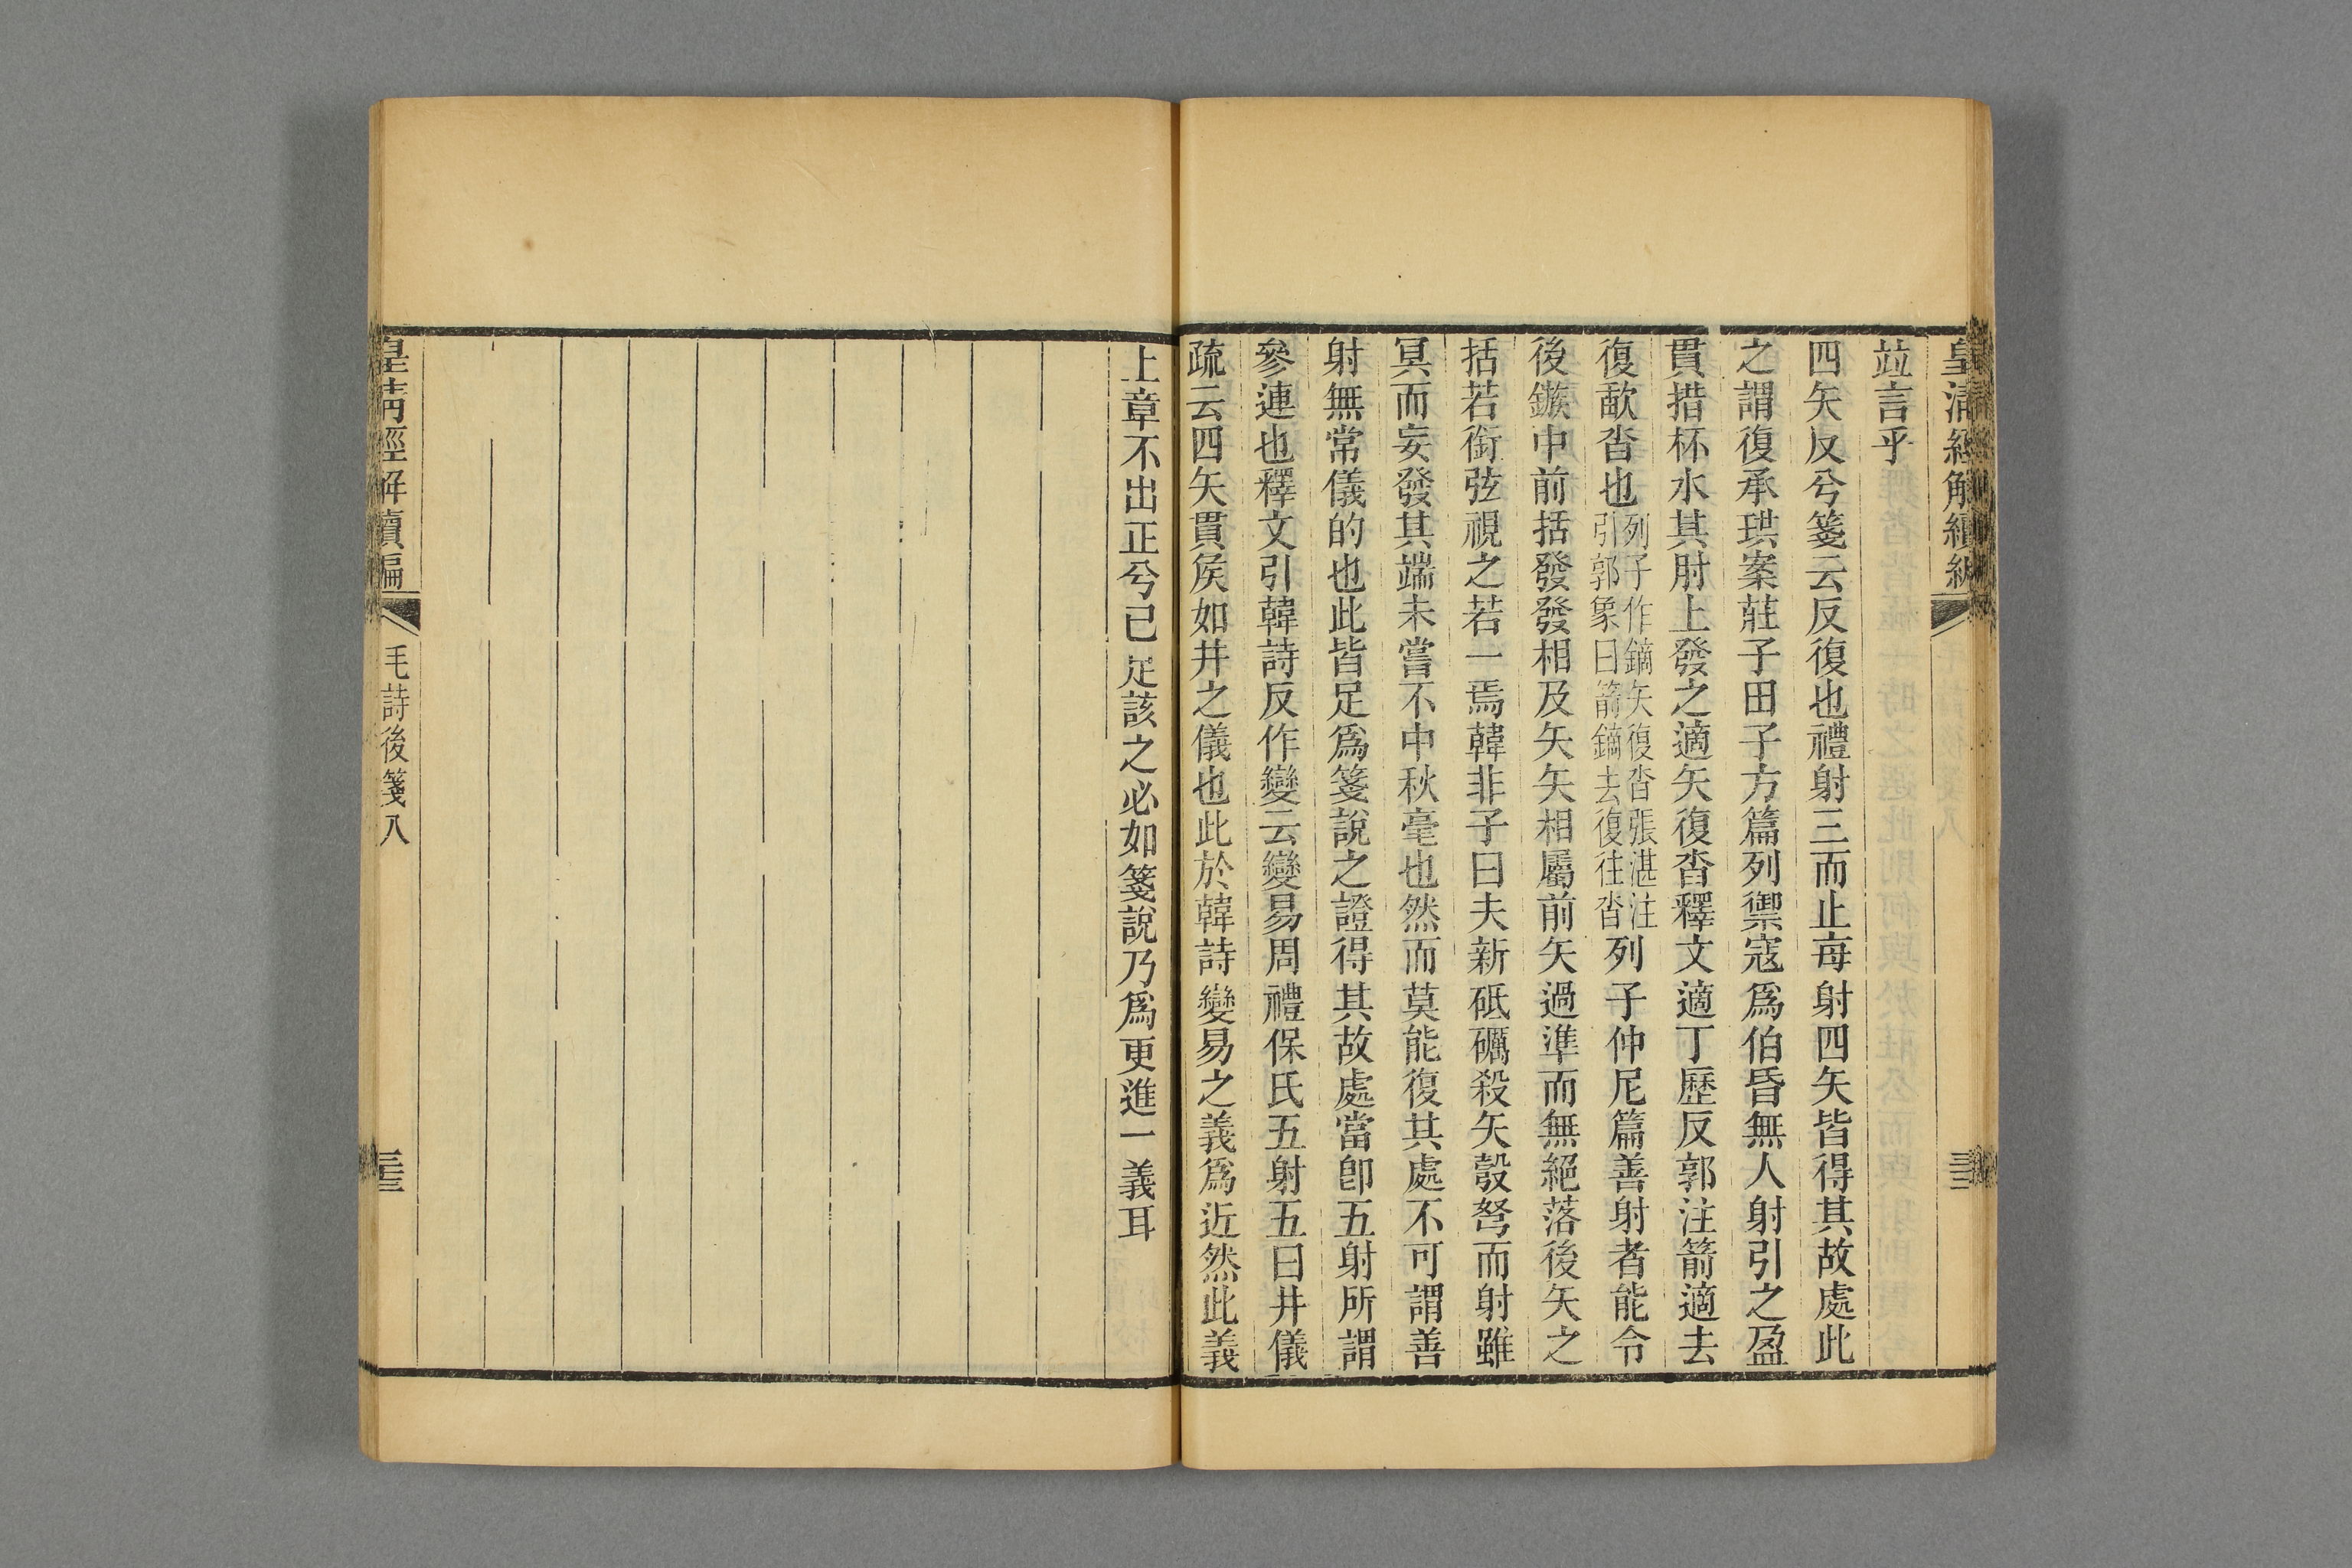 皇清經解續編
竝言乎
四矢反兮箋云反復也禮射三而止每射四矢皆得其故處此
之謂復承珙案莊子田子方篇列禦寇爲伯昏無人射引之盈
貫措杯水其肘上發之適矢復沓釋文適丁歷反郭注箭適去
復歃沓也列子作鏑矢復沓張湛注引郭象曰箭鏑去復往沓列子仲尼篇善射者能令
後鏃中前括發發相及矢矢相屬前矢過準而無絕落後矢之
括若銜弦視之若一焉韓非子曰夫新砥礪殺矢彀弩而射雖
冥而妄發其端未嘗不中秋毫也然而莫能復其處不可謂善
射無常儀的也此皆足爲箋說之證得其故處當卽五射所謂
參連也釋文引韓詩反作變云變易周禮保氏五射五曰井儀
疏云四矢貫矦如井之儀也此於韓詩變易之義爲近然此義
上章不出正兮已足該之必如箋說乃爲更進一義耳
皇清經解續編
毛詩後箋八